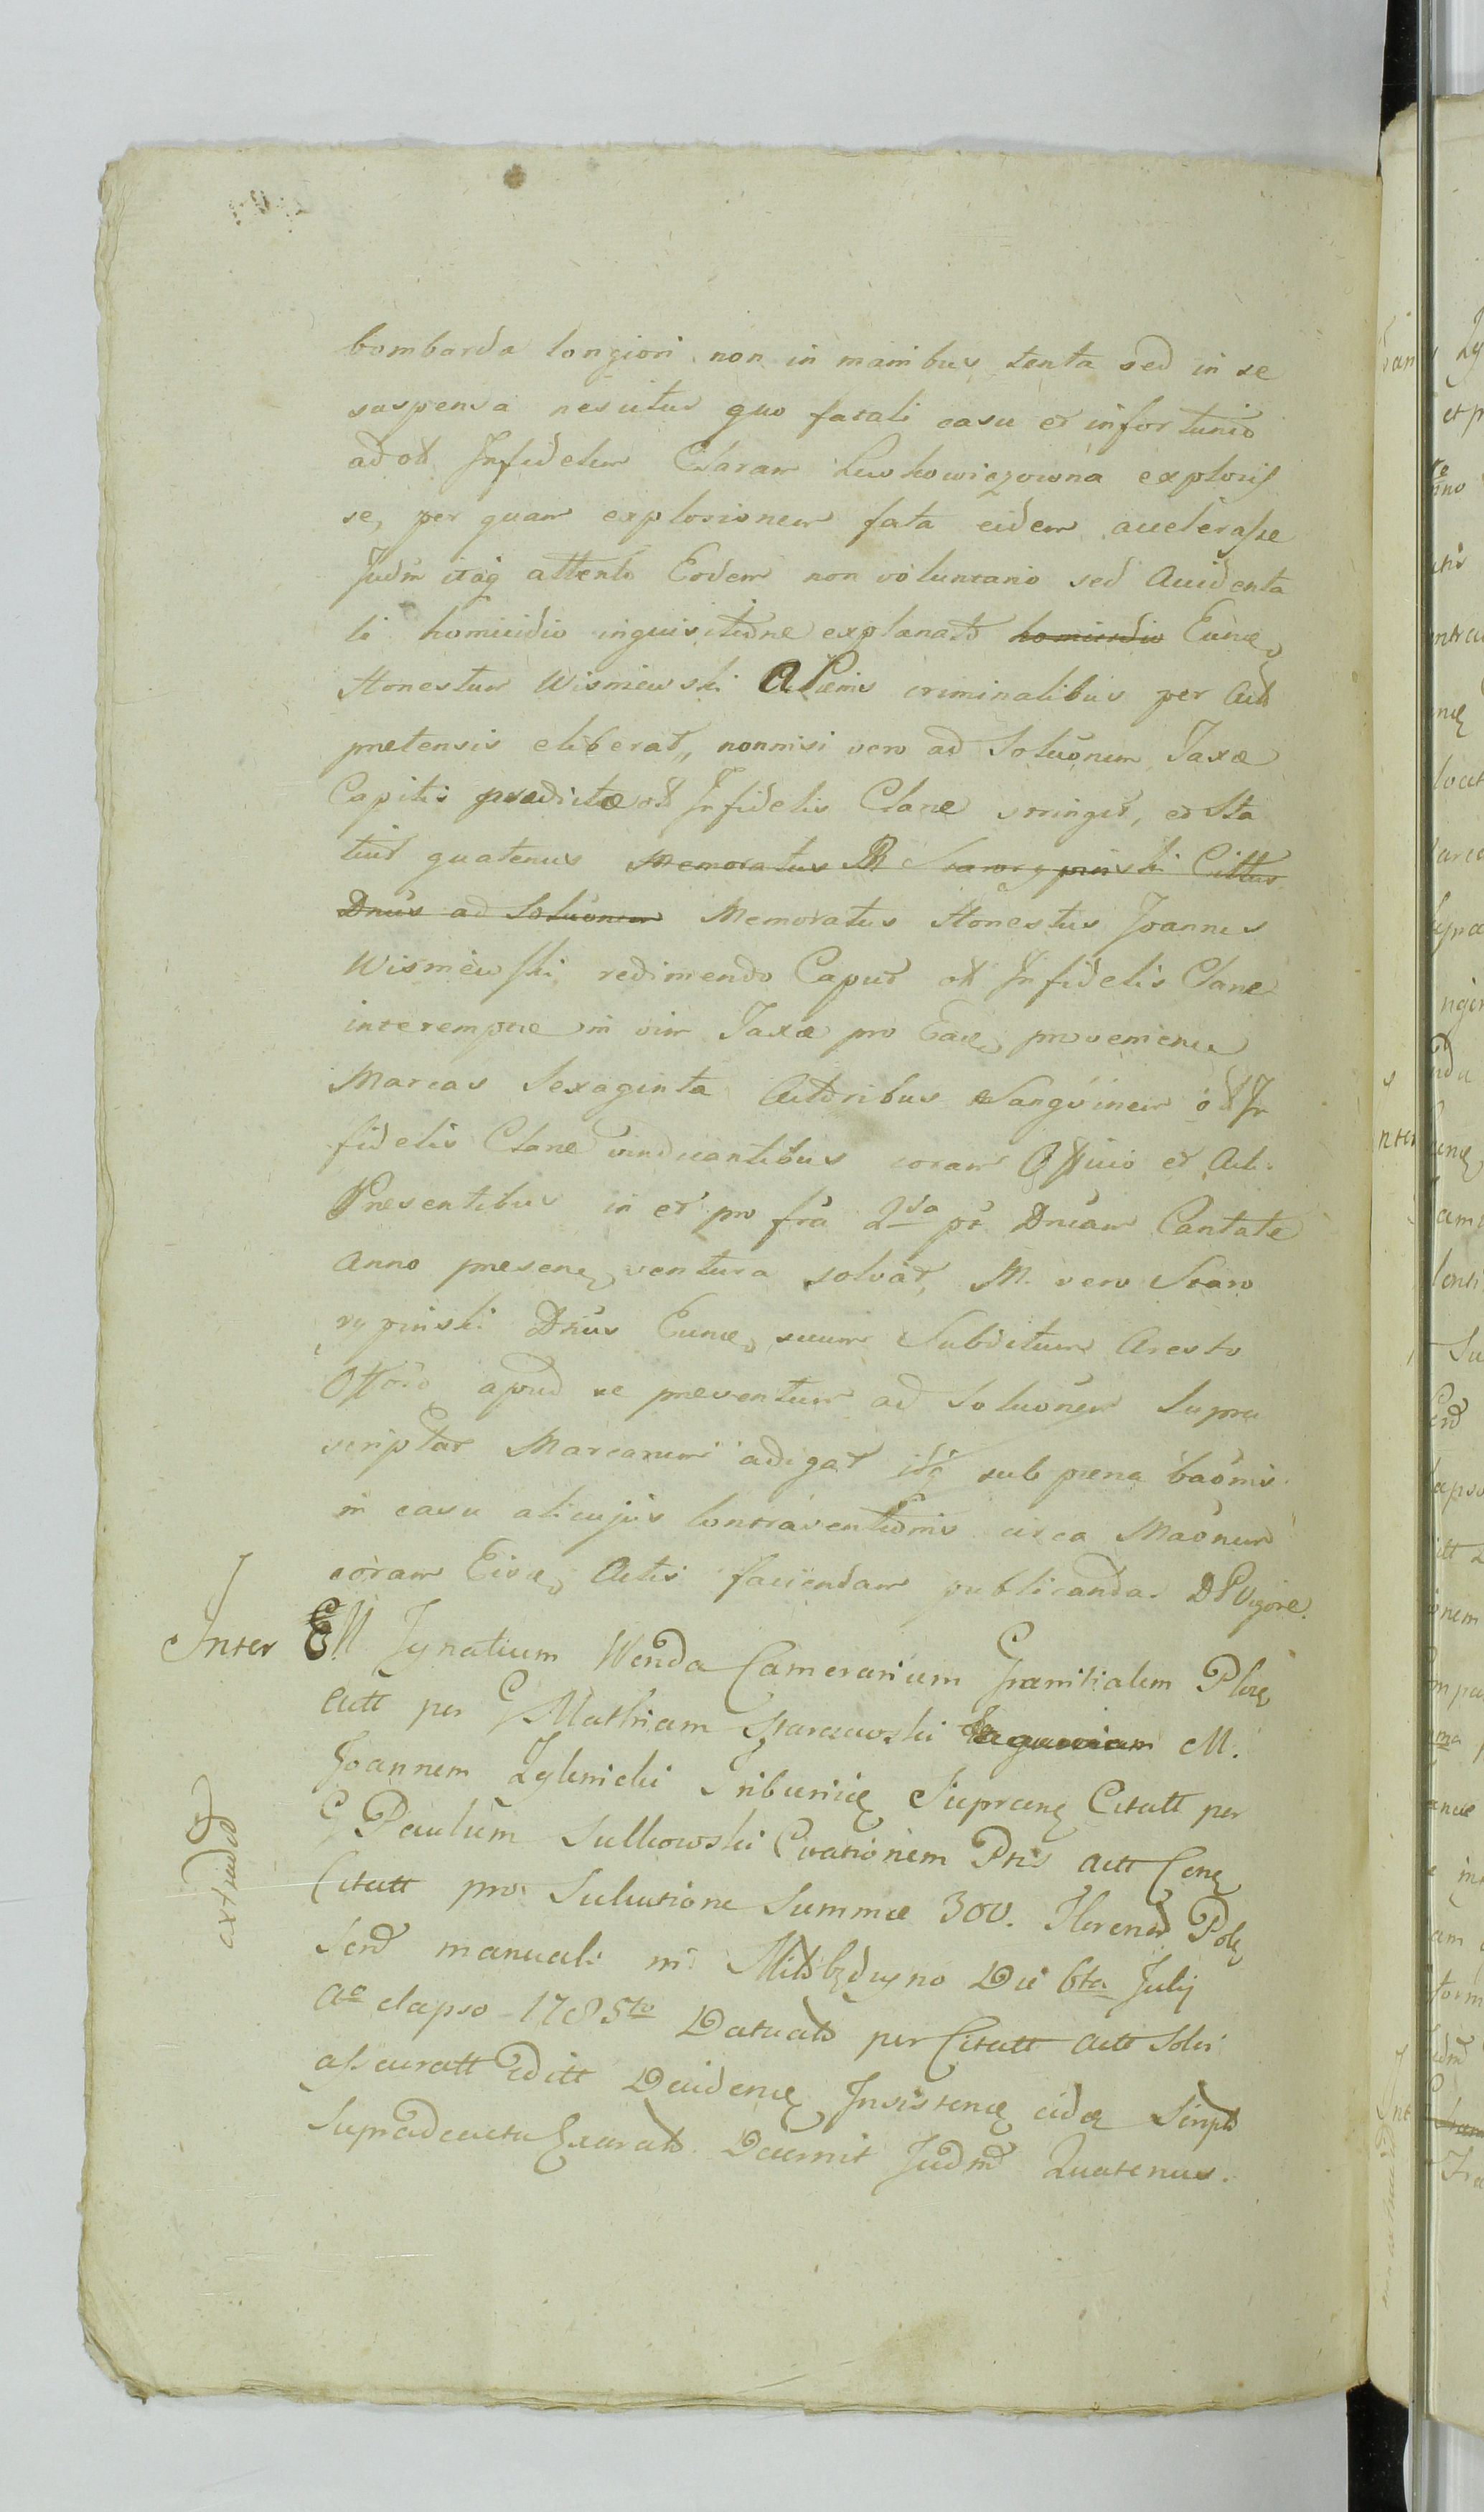 bombarda longiori non in manibus tenta sed in se
suspensa nescitur quo fatali casu et infortunio
ad olt Infidelem Claram Lewkowiczowna explosis
se, per quam explosionem fata eidem accelerasse
Judm itaq attento Eodem non voluntario sed Accidenta
li homicidio inquisitione explanato homicidio Eunde
Honestum Wisniewski A Pænis criminalibus per Actt
prætensis eliberat, nonnisi vero ad Soluõnem Taxæ
Capitis prædictæ olt Infidelis Claræ stringit, et Sta
tuit quatenus Memoratus M Skarzypinski Cittus
Dnus ad Soluõnem Memoratus Honestus Joannes
Wisniewski redimendo Caput olt Infidelis Claræ
interemptæ in vim Taxæ pro Ea provenien
Marcas Sexaginta Actoribus Sangvinem olt In
fidelis Claræ vindicantibus coram Officio et Act.
Præsentibus in et pro fria 2da pt Dnicam Cantate
Anno præsen ventura solvat, M. vero Skaro
rypinski Dnus Eund suum Subditum Aresto
Offoso apud se præventum ad Soluõnem Supra
scriptar Marcarum adigat idq sub pæna baõnis
in casu alicujus Contraventionis circa Maõnem
coram Eisd Actis faciendam publicanda DPVigore.
Inter GM Ignatium Wenda Camerarium Granitialem Ploc
Actt per G Mathiam Starczewski M.
Joannem Zylinicki Tribunic Siepranc Citatt per
G Paulum Sulkowski Citationem Ptis Actt Cone
Citatt pro Solutione Summæ 300. Floreno Pol
Scrd manuali in Miłobędzyno Die 6ta Julij
Ao elapso 1785to Datuato per Citatt Actt Solvi
assecuratt editt Deidenc Insistenc eide Scripto
Supradeducta Exarato Decernit Judm Quatenus.
extrado